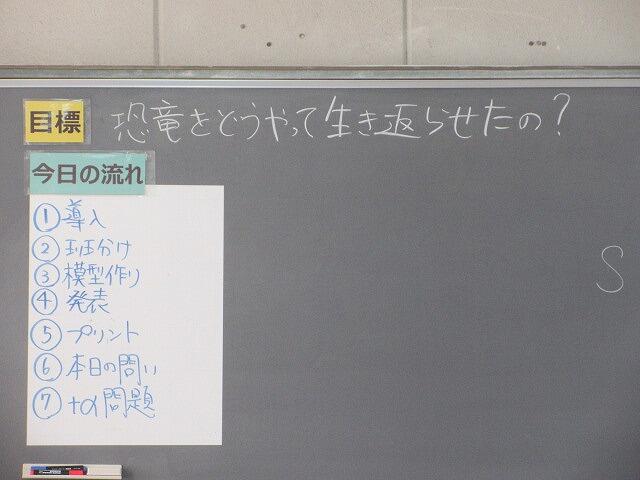 目標 恐竜をどうやって生き返らせたの?
今日の流れ
① 導入
② 班分け
③ 模型作り
④ 発表
⑤ プリント
⑥ 本日の問い
⑦ +α問題
S